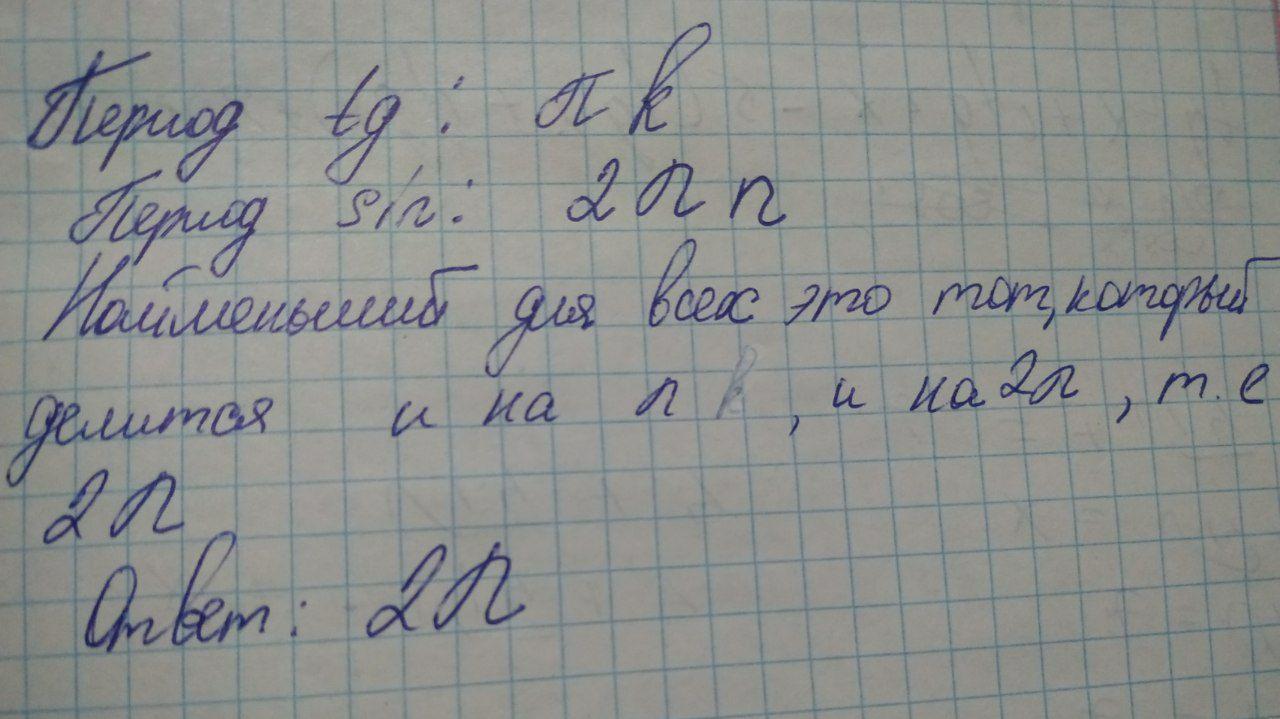 Период tg: π k
Период sin: 2π n
Наименьший для всех это тот, который
делится и на π k, и на 2π, т.е
2π
Ответ: 2π